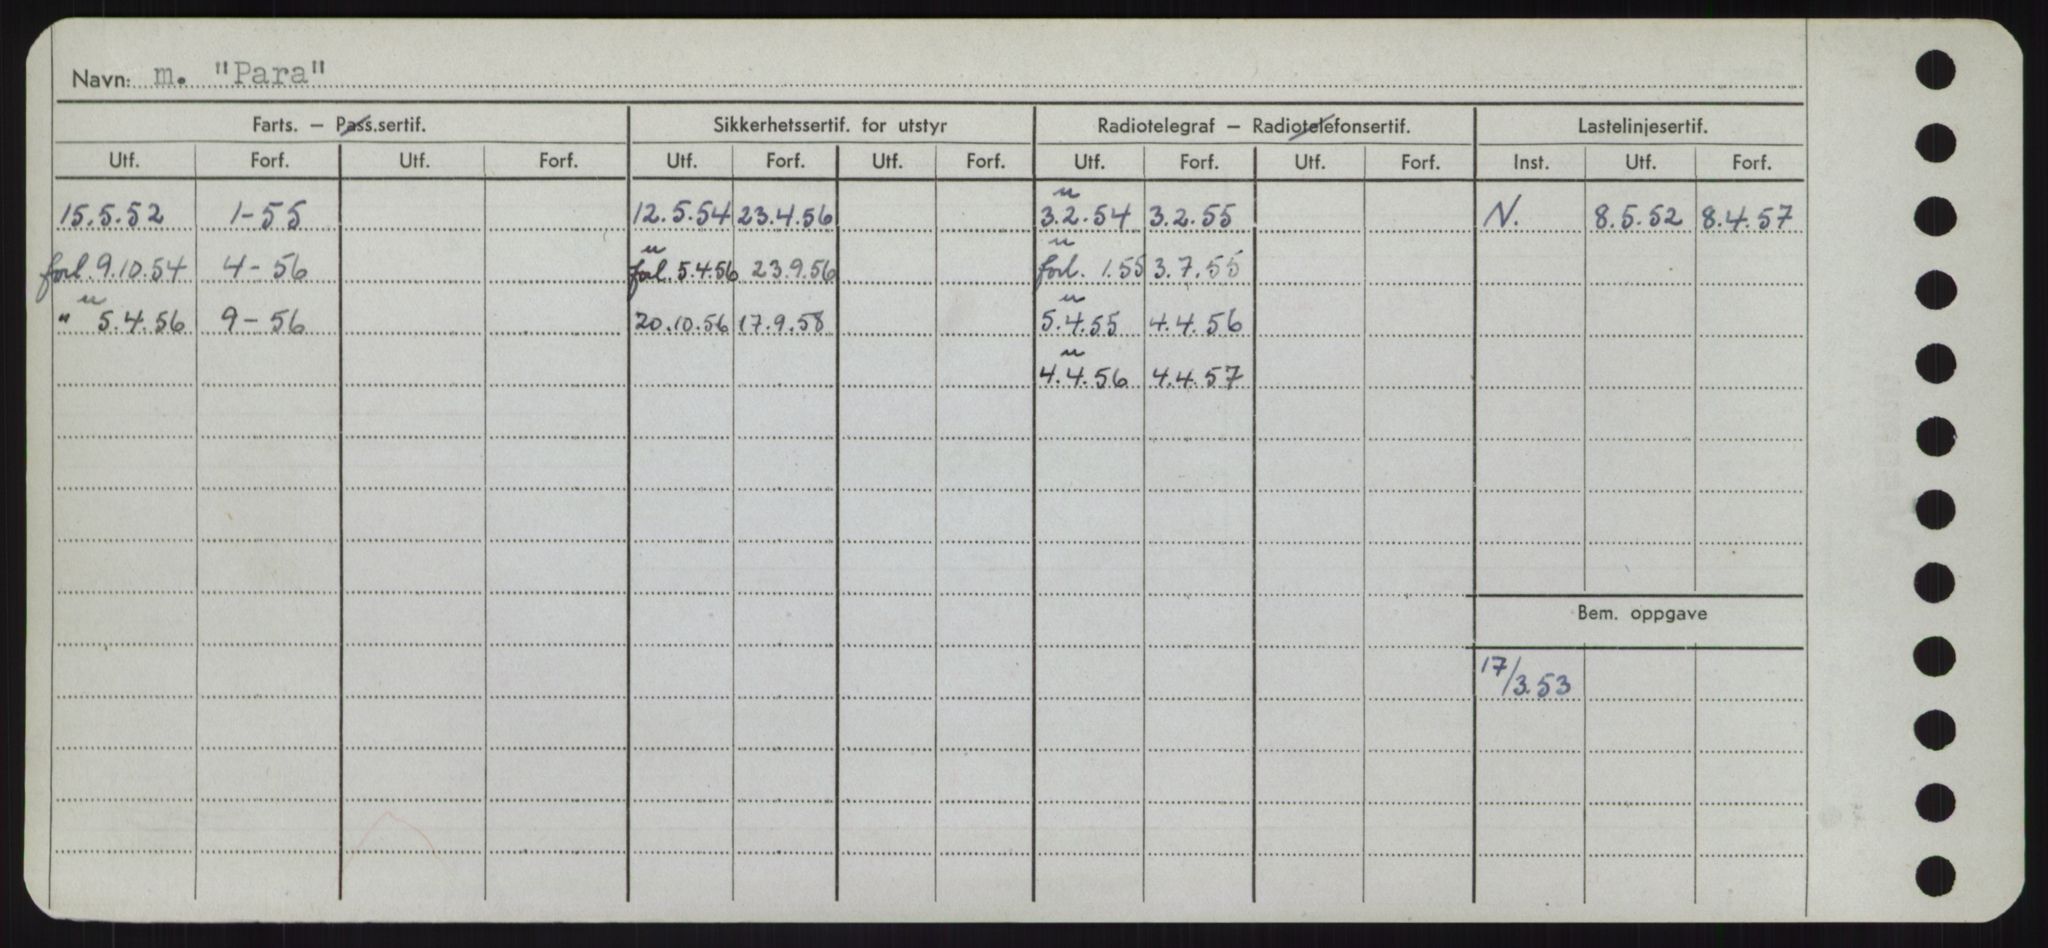 Navn: m. "Para"
Farts. — Pass.sertif. Sikkerhetssertif. for utstyr Radiotelegraf — Radiotelefonsertif. Lastelinjesertif.
Utf. Forf. Utf. Forf. Utf. Forf. Utf. Forf. Utf. Forf. Utf. Forf. Inst. Utf. Forf.
u
15.5.52 1-55 12.5.54 23.4.56 3.2.54 3.2.55 N. 8.5.52 8.4.57
u u
forl. 9.10.54 4-56 forl. 5.4.56 23.9.56 forl. 1.55 3.7.55
u u
" 5.4.56 9-56 20.10.56 17.9.58 5.4.55 4.4.56
u
4.4.56 4.4.57
Bem. oppgave
17/3.53